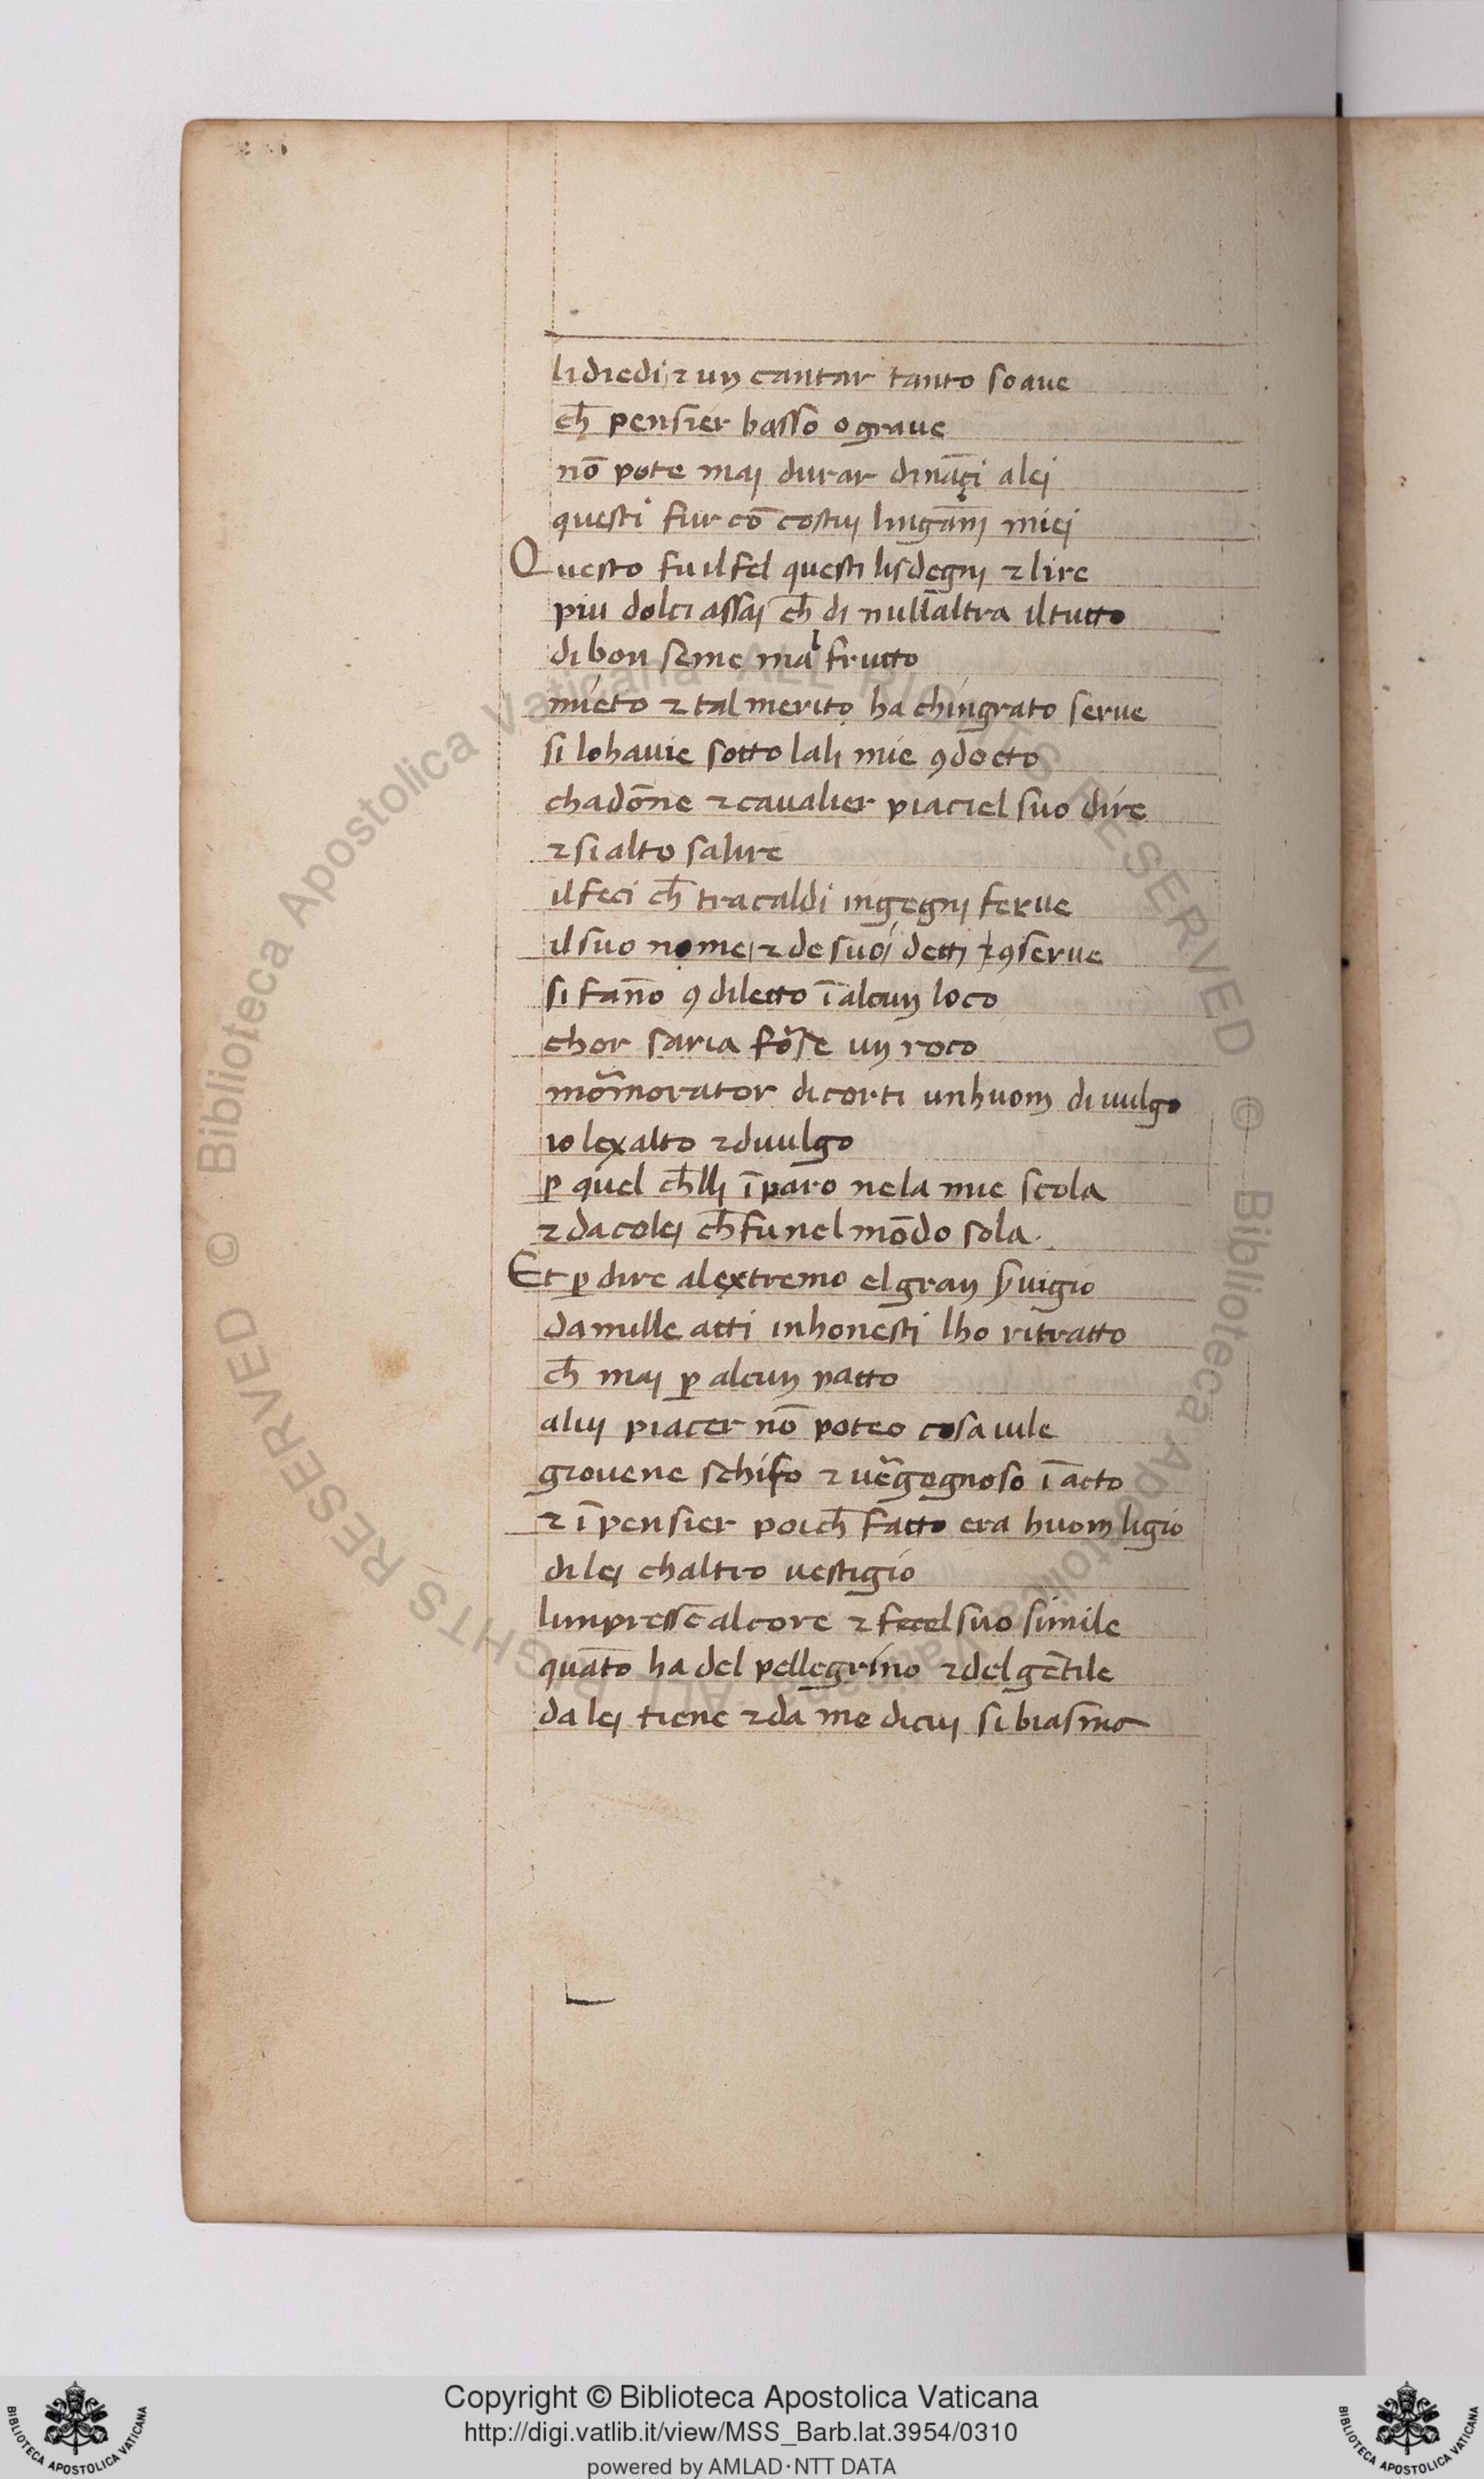 li diedi ⁊ un cantar tanto soaue
ch̄ pensier basso o graue
nō pote maj durar dināçi alej
questi fur cō costuj linganj̄ miej
Questo fu il fel questi lisdegnj ⁊ lire
piu dolci assaj ch̄ di null altra il tutto
di bon seme mal frutto
mieto ⁊ tal merito ha chingrato serue
si lohauie sotto lali mie ꝯdocto
chadōne ⁊ caualier piaciel suo dire
⁊ si alto salire
il feci ch̄ tra caldi ingegnj ferue
il suo nome ⁊ de suoi dettj ꝯserue
si fanno ꝯ diletto ī alcun loco
chor saria forse un roco
mormorator di corti un huom di uulgo
io lexalto ⁊ diuulgo
ꝑ quel ch̄llj īparo nela mie scola
⁊ da colej ch̄ fu nel mōdo sola.
Et ꝑ dire al extremo el gran suigio
da mille atti inhonesti lho ritratto
ch̄ maj ꝑ alcun patto
aluj piacer nō poteo cosa uile
giouene schifo ⁊ uergognoso ī acto
⁊ ī pensier poich̄ fatto era huom ligio
di lej chaltro uestigio
limpresse al core ⁊ fecel suo simile
quāto ha del pellegrino ⁊ del gētile
da lej tiene ⁊ da me dicuj si biasmo
Copyright © Biblioteca Apostolica Vaticana
http://digi.vatlib.it/view/MSS_Barb.lat.3954/0310
powered by AMLAD·NTT DATA
BIBLIOTECA APOSTOLICA VATICANA
BIBLIOTECA APOSTOLICA VATICANA
© Biblioteca Apostolica Vaticana ALL RIGHTS RESERVED © Biblioteca Apostolica Vaticana ALL RIGHTS RESERVED